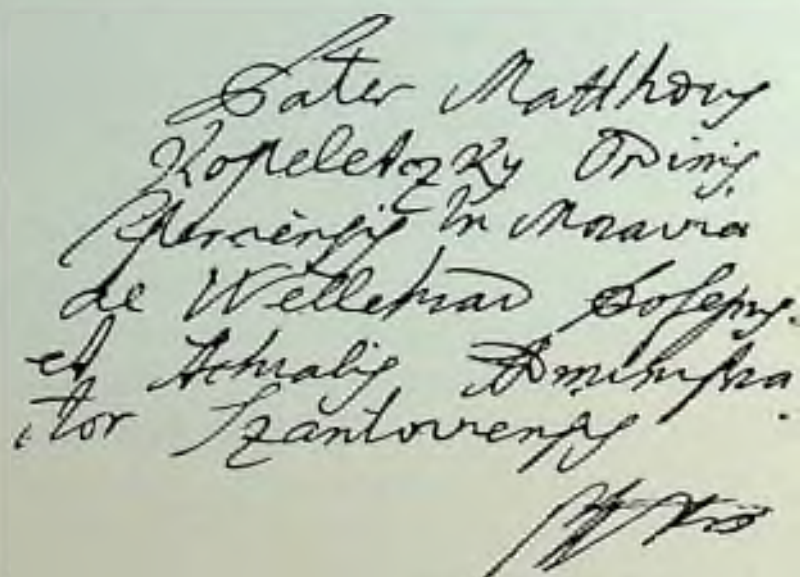 Pater Matthæus
Kopeletzky Ordinis
Cisterciensis in Moravia
de Wellehrad Professus.
et Actualis Administra
tor Szantoviensis